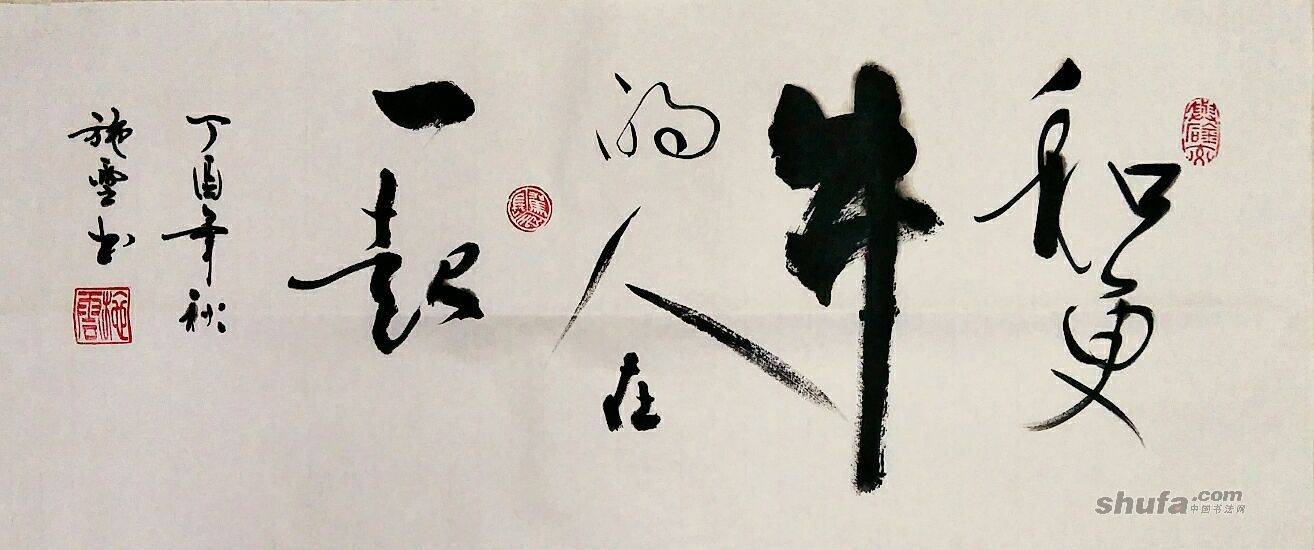 和更
牛
的人在
一起
丁酉年秋
施雲书
施雲
shufa.com
中国书法网